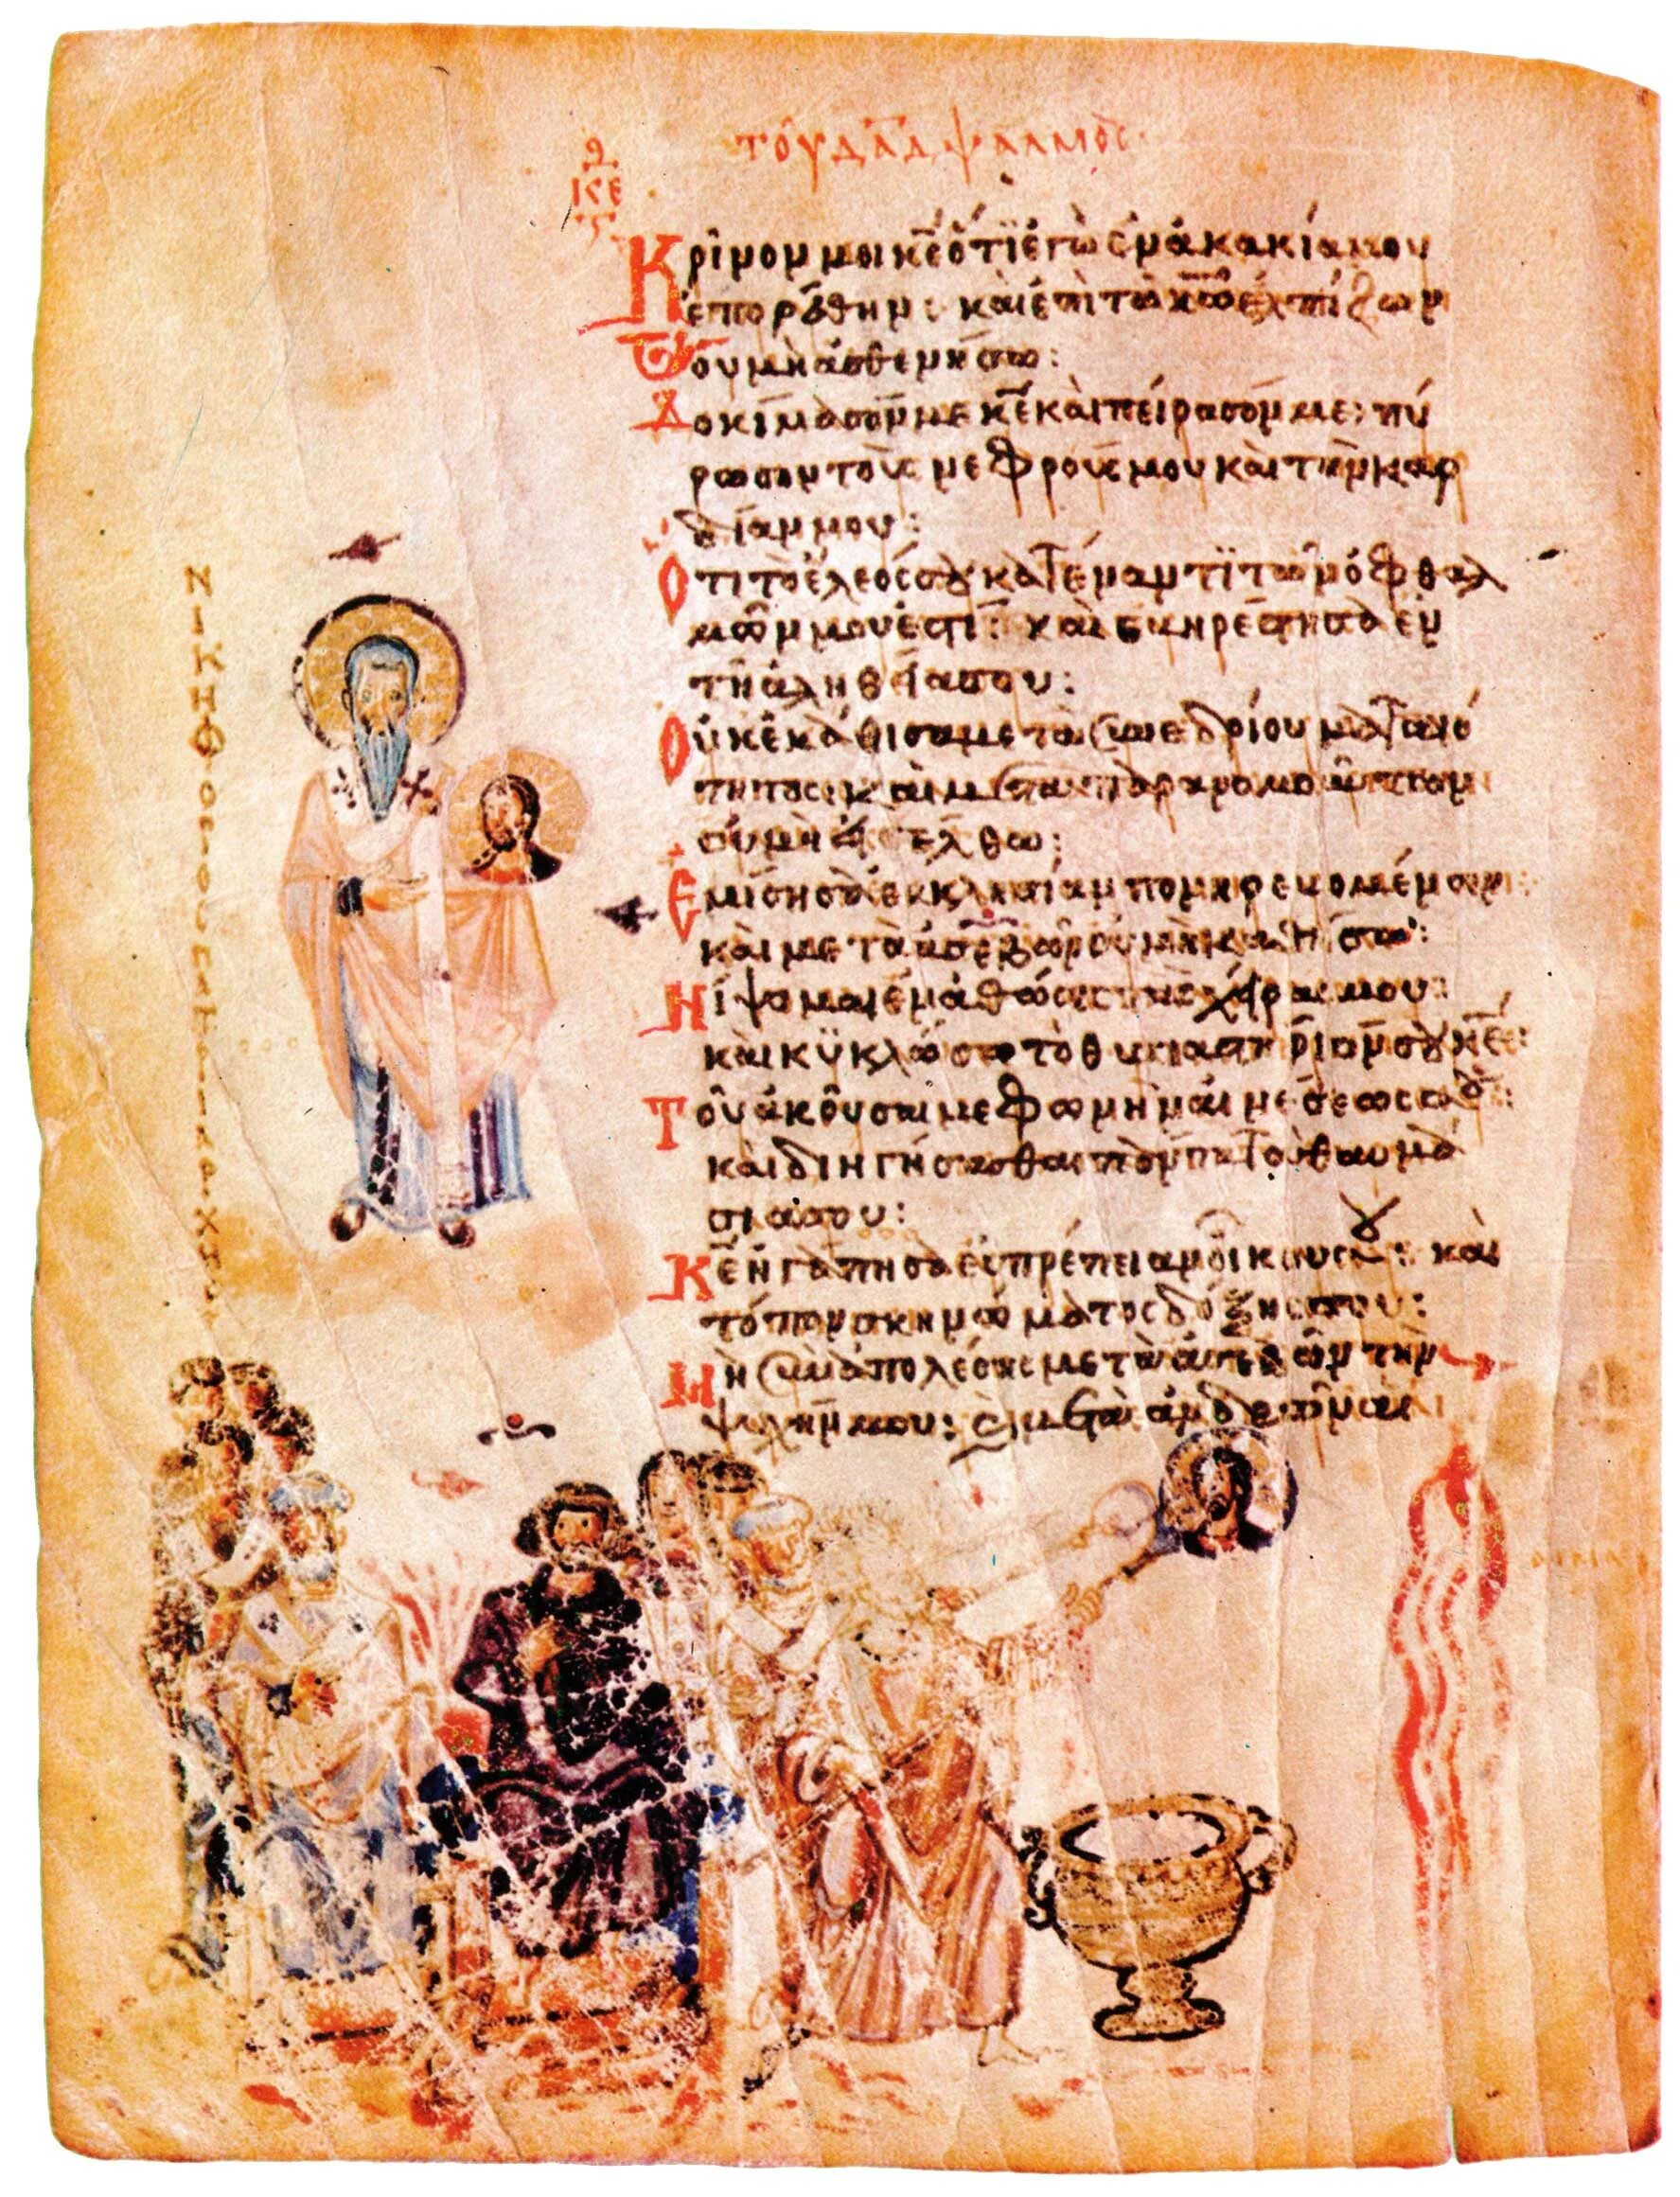 τοῦ δαδ ψαλμος
ΚΕ
Κρῖνόν μοι κε ὅτι ἐγὼ ἐν ἀκακία μου
ἐπορεύθην: καὶ ἐπὶ τῶ κω ἐλπίζων
οὐ μὴ ἀσθενήσω:
Δοκίμασόν με κε καὶ πείρασόν με: πύ
ρωσον τοὺς νεφρούς μου καὶ τὴν καρ
δίαν μου:
Ὅτι τὸ ἔλεός σου κατέναντι τῶν ὀφθαλ
μῶν μου ἐστί: καὶ εὐηρέστησα ἐν
τῆ ἀληθεία σου:
Οὐκ ἐκάθισα μετὰ συνεδρίου ματαιό
τητος: καὶ μετὰ παρανομούντων
οὐ μὴ εἰσέλθω:
Ἐμίσησα ἐκκλησίαν πονηρευομένων:
καὶ μετὰ ἀσεβῶν οὐ μὴ καθίσω:
Νίψομαι ἐν ἀθώοις τὰς χεῖρας μου:
καὶ κυκλώσω τὸ θυσιαστήριόν σου κε:
Τοῦ ἀκοῦσαι με φωνὴν αἰνέσεως σου:
καὶ διηγήσασθαι πάντα τὰ θαυμά
σιά σου:
Κε ἠγάπησα εὐπρέπειαν οἴκου σου: καὶ
τόπον σκηνώματος δόξης σου:
Μὴ συναπολέσης μετὰ ἀσεβῶν τὴν
ψυχήν μου: καὶ μετὰ ἀνδρῶν αἱ
ΝΙΚΗΦΟΡΟΣ ΠΑΤΡΙΑΡΧΗΣ